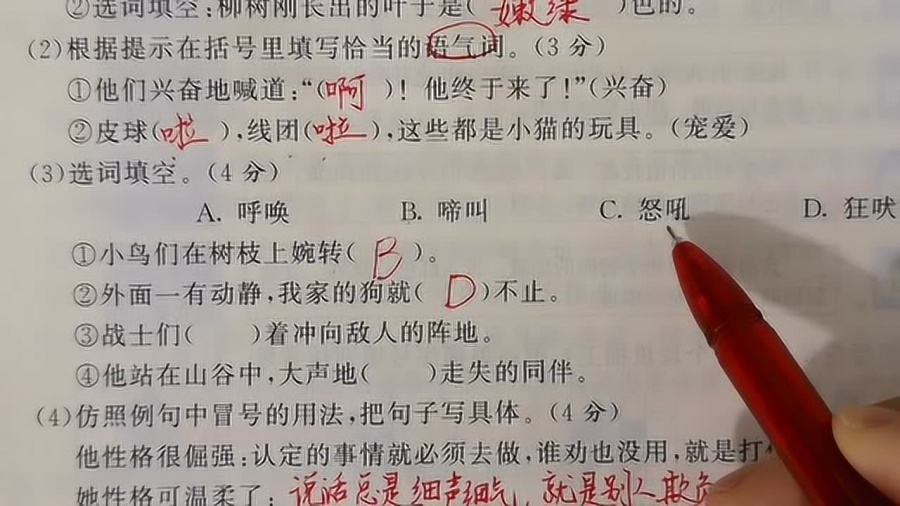 ②选词填空:柳树刚长出的叶子是(嫩绿)色的。
(2)根据提示在括号里填写恰当的语气词。(3分)
①他们兴奋地喊道:“(啊)!他终于来了!”(兴奋)
②皮球(啦),线团(啦),这些都是小猫的玩具。(宠爱)
(3)选词填空。(4分)
A. 呼唤 B. 啼叫 C. 怒吼 D. 狂吠
①小鸟们在树枝上婉转(B)。
②外面一有动静,我家的狗就(D)不止。
③战士们( )着冲向敌人的阵地。
④他站在山谷中,大声地( )走失的同伴。
(4)仿照例句中冒号的用法,把句子写具体。(4分)
他性格很倔强:认定的事情就必须去做,谁劝也没用,就是打
她性格可温柔了:说话总是细声细气,就是别人欺负